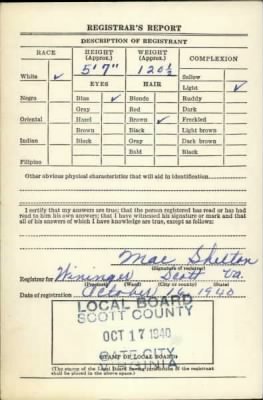 REGISTRAR'S REPORT
DESCRIPTION OF REGISTRANT
RACE HEIGHT (Approx.) WEIGHT (Approx.) COMPLEXION
5' 7" 120½
White ✓ Sallow
EYES HAIR Light ✓
Negro Blue ✓ Blonde Ruddy
Gray Red Dark
Oriental Hazel Brown ✓ Freckled
Brown Black Light brown
Indian Black Gray Dark brown
Bald Black
Filipino
Other obvious physical characteristics that will aid in identification
I certify that my answers are true; that the person registered has read or has had
read to him his own answers; that I have witnessed his signature or mark and that
all of his answers of which I have knowledge are true, except as follows:
Mac Shelton
(Signature of registrar)
Registrar for Wininger Scott Va.
(Precinct) (Ward) (City or county) (State)
Date of registration October 16, 1940
LOCAL BOARD
SCOTT COUNTY
OCT 17 1940
(STAMP OF LOCAL BOARD)
GATE CITY
VIRGINIA
(The stamp of the Local Board having jurisdiction of the registrant
shall be placed in the above space.)